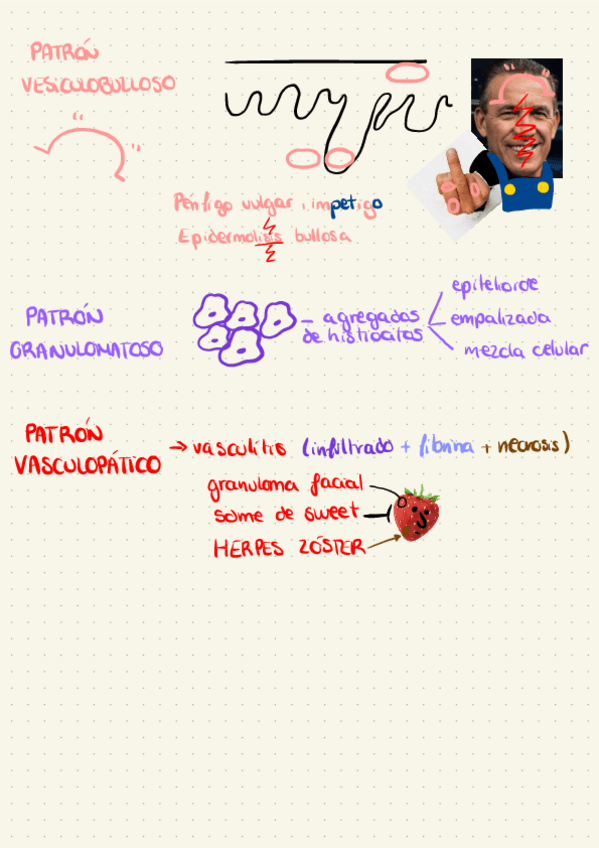 PATRÓN
VESICULOBULLOSO
Pénfigo vulgar, impetigo
Epidermolisis bullosa
PATRÓN
GRANULOMATOSO
– agregados
de histiocitos
epitelioide
empalizada
mezcla celular
PATRÓN
VASCULOPÁTICO
→ vasculitis (infiltrado + fibrina + necrosis)
granuloma facial
some de sweet
HERPES ZÓSTER